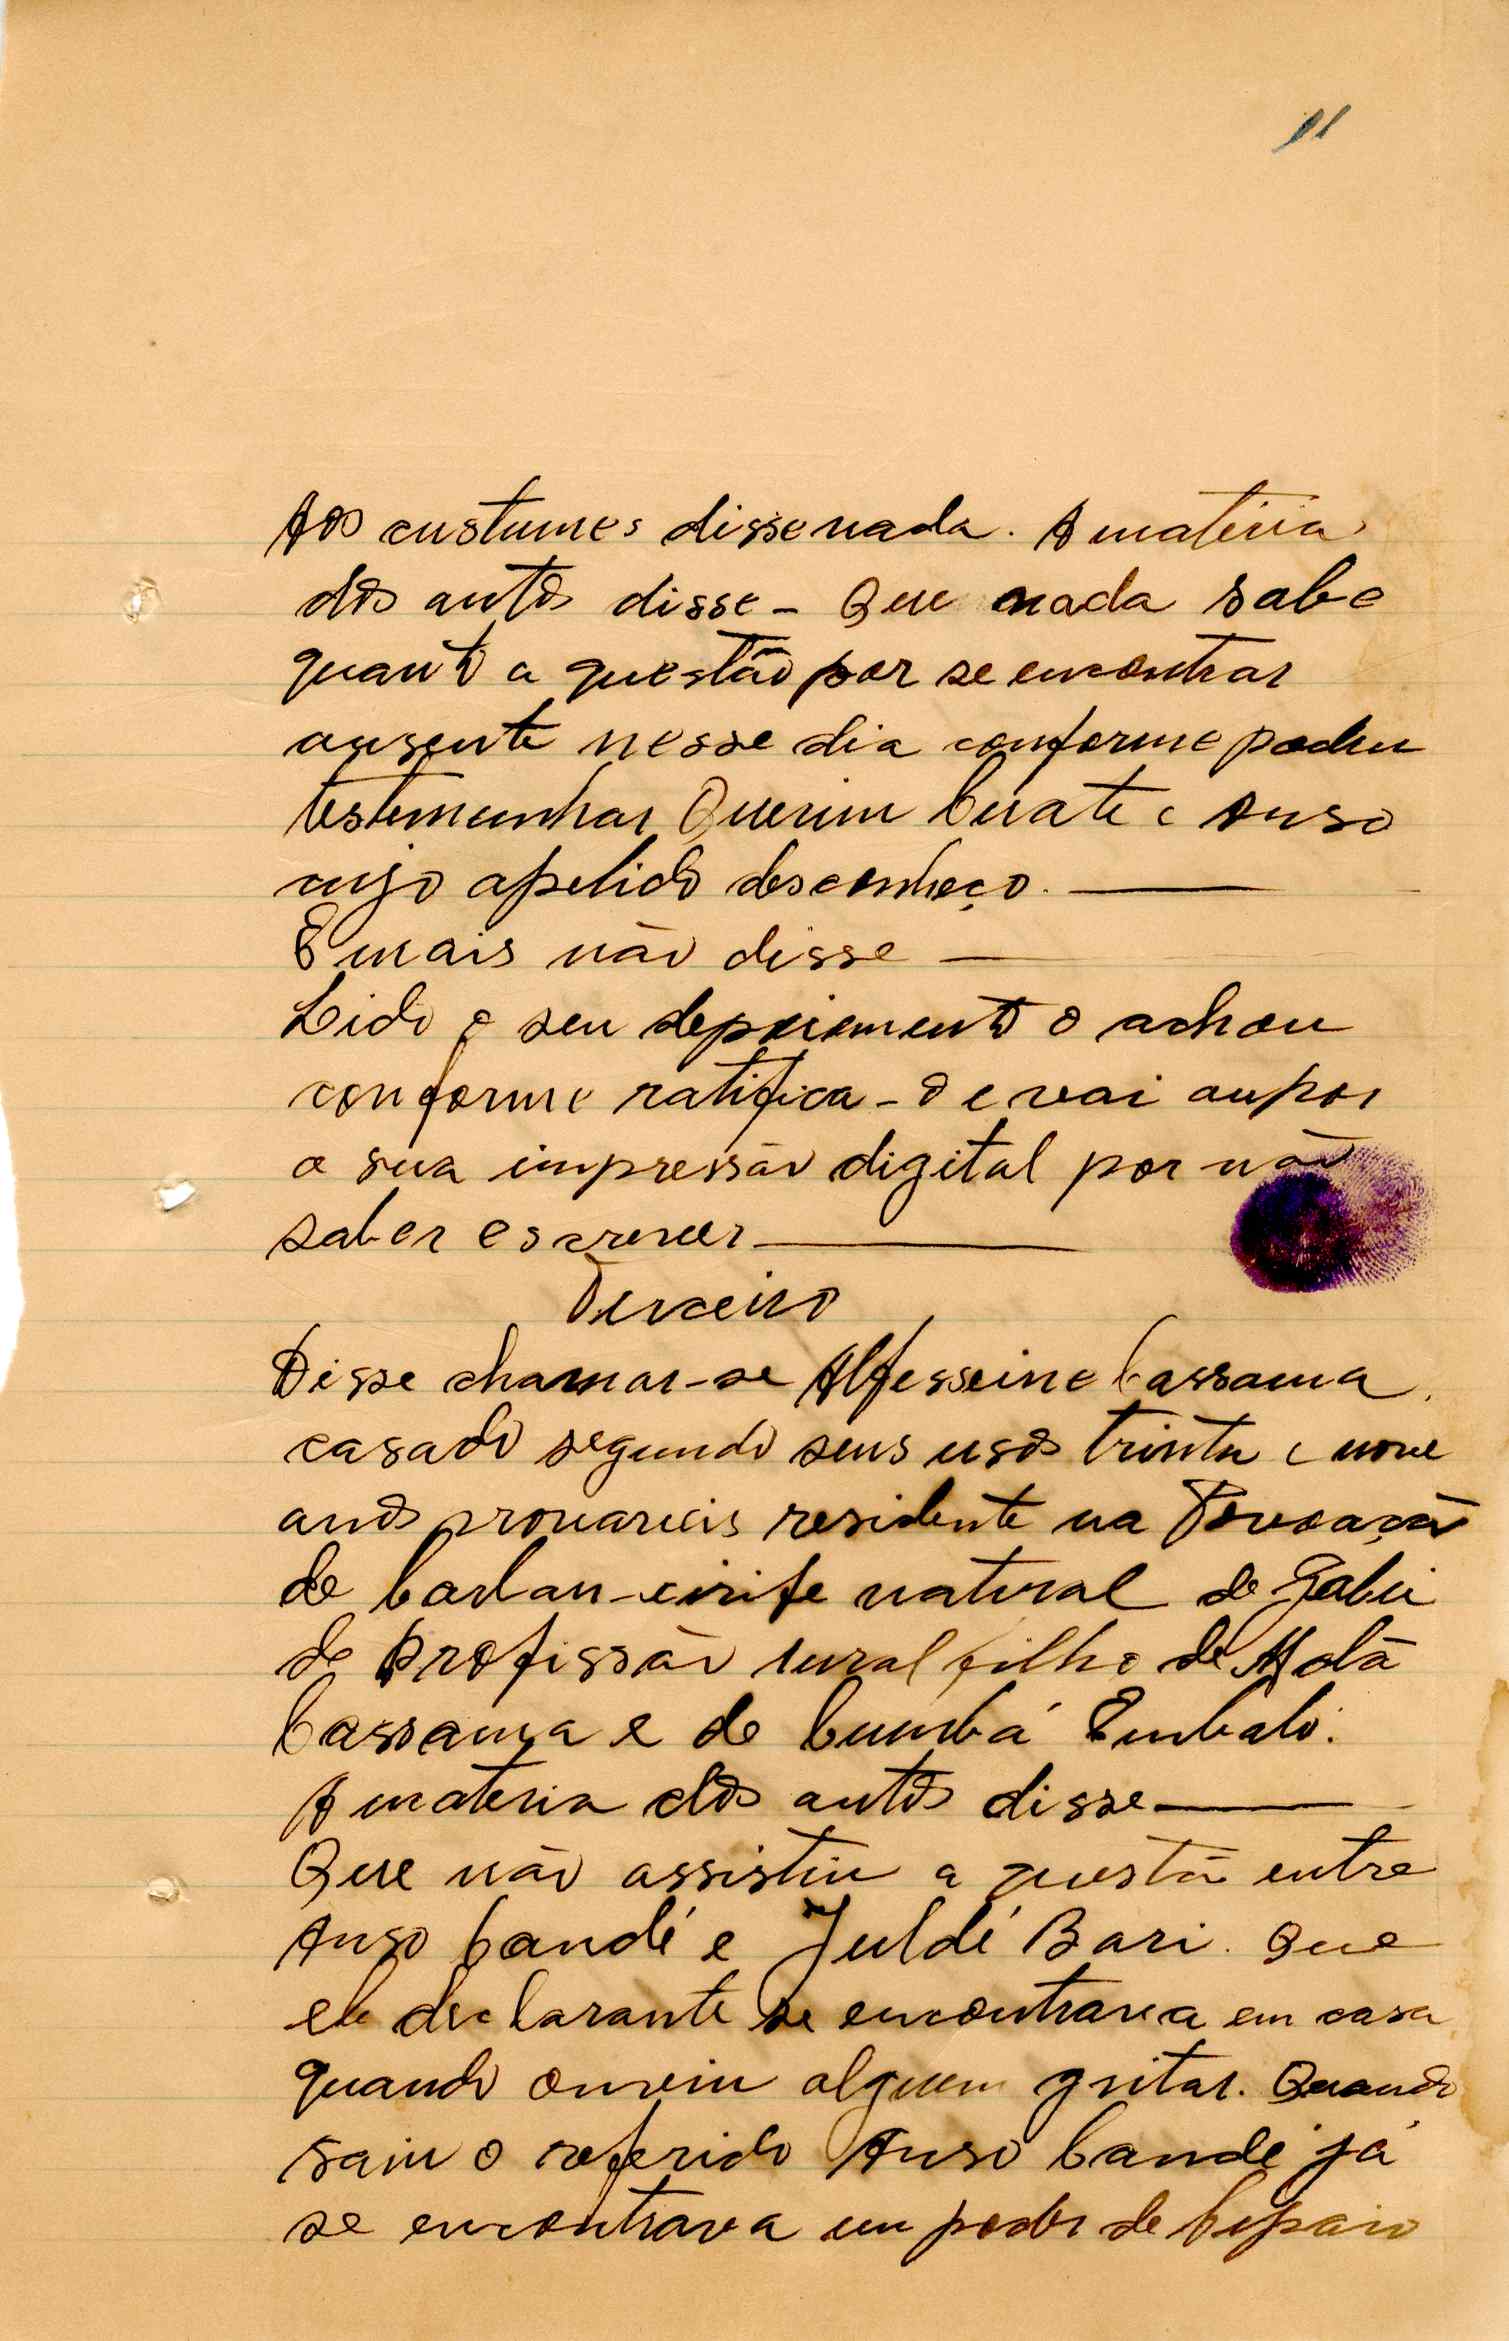 11
Aos custumes disse nada. A matéria
dos autos disse - Que nada sabe
quanto a questão por se encontrar
ausente nesse dia conforme podem
testemunhar Querim Cerate e Anso
cujo apelido desconheço. ———
E mais não disse —
Lido o seu depoiemento o achou
conforme ratifica-o e vai aupor
a sua impressão digital por não
saber escrever ———
Terceiro
Disse chamar-se Alfesseine Cassama,
casado segundo seus usos trinta e nove
anos provaveis residente na Povoação
de natural de Gabú
de profissão rural filho de Molá
Cassama e de Cumbá Embaló.
A materia dos autos disse ———
Que não assistiu a questão entre
Anso Candé e Juldé Bari. Que
ele declarante se encontrava em casa
quando ouviu alguem gritar. Quando
saiu o referido Anso Candé já
se encontrava em poder de Cipaio